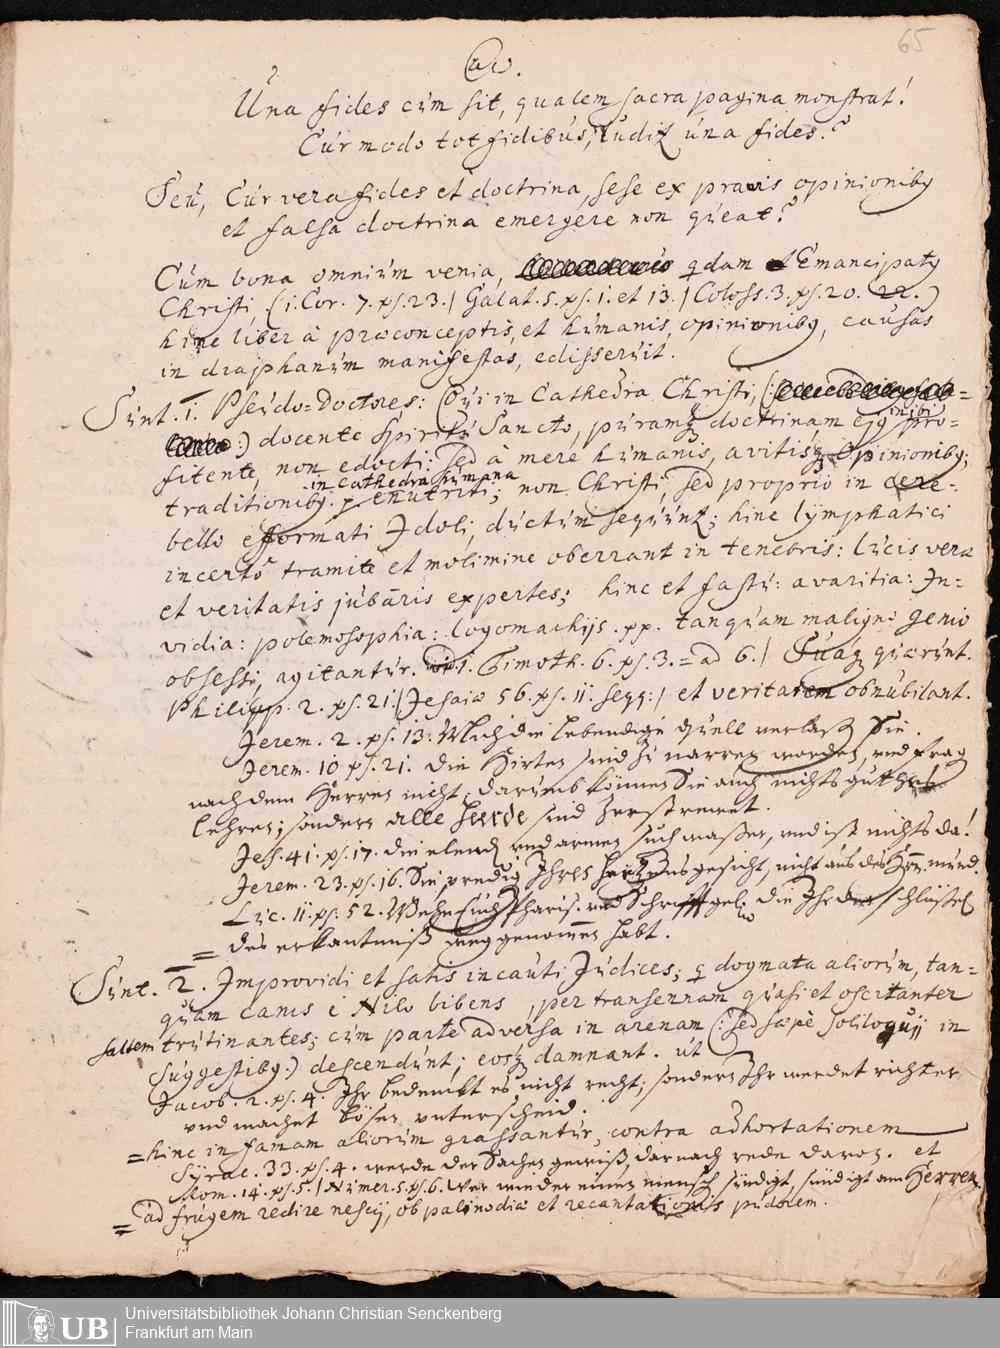 65
Una fides cùm sit, qualem sacra pagina monstrat!
Cur modo tot fidibus, luditur una fides?
Seu, Cur vera fides et doctrina, sese ex pravis opinionibus
et falsa doctrina emergere non queat?
Cum bona omnium venia, qdam Emancipatus
Christi, (1. Cor. 7. ps. 23. / Galat. 5. ps. 1. et 13. / Coloss. 3. ps. 20. 22.)
hinc liber à praeconceptis, et humanis, opinionibus, causas
in diaphanum manifestas, edisseruit.
Sunt. 1. Pseudo=Doctores: Qui in Cathedra Christi, (:
:) docente Spiritu Sancto, puramq doctrinam ejus inibi pro-
fitente, non edocti: sed à mere humanis, avitisq Opinionibus;
in Cathedra humana
traditionibus. p. enutriti; non Christi, sed proprio in cere-
bello efformati Idoli, ductum sequuntur; hinc lymphatici
incerto tramite et molimine oberrant in tenebris: lucis vera
et veritatis jubaris expertes; hinc et fastu: avaritia: In-
vidia: polemosophia: logomachijs. pp. tanquam maligno genio
obsessi, agitantur. 1. Timoth. 6. ps. 3. = ad 6. / Suaq quaerunt.
Philipp. 2. ps. 21. / Jesaia 56. ps. 11. seqq: / et veritatem obnubilant.
Jerem. 2. ps. 13. Mich die lebendige quell verlaß Sie.
Jerem. 10 ps. 21. die Hirten sind zu narren worden, und frag
nach dem Herren nicht; darumb können Sie auch nichts guts
lehren; sondern alle Heerde sind zerstrewet.
Jess. 41. ps. 17. die elend und armen such wasser, und ist nichts da!
Jerem. 23. ps. 16. Sie predig Ihres Hertzens gesicht, nicht aus des Hrn. mund.
Luc. 11. ps. 52. Wehe Euch Pharis. und Schrifftgel. die Ihr den schlüssel
= des erkantniß weggenommen habt.
Sunt. 2. Improvidi et satis incauti Judices; q dogmata aliorum, tan=
quam canis è Nilo bibens, per transennam quasi et oscitanter
saltem trutinantes; cum parte adversa in arenam (: sed saepè soliloquij in
suggestibus:) descendunt; eosq damnant. ut
Jacob. 2. ps. 4. Ihr bedenckt es nicht recht; sondern Ihr werdet richter
und machet bösen unterscheid.
= hinc in famam aliorum grassantur, contra adhortationem
Syrac. 33. ps. 4. werde der Sachen gewiß, darnach rede davon. et
Rom. 14. ps. 5. / Numer. 5. ps. 6. Wer wieder einen mensch sündigt, sündigt am Herren.
= ad frugem redire nescij, ob palinodiae et recantationis pudorem.
Universitätsbibliothek Johann Christian Senckenberg
UB Frankfurt am Main